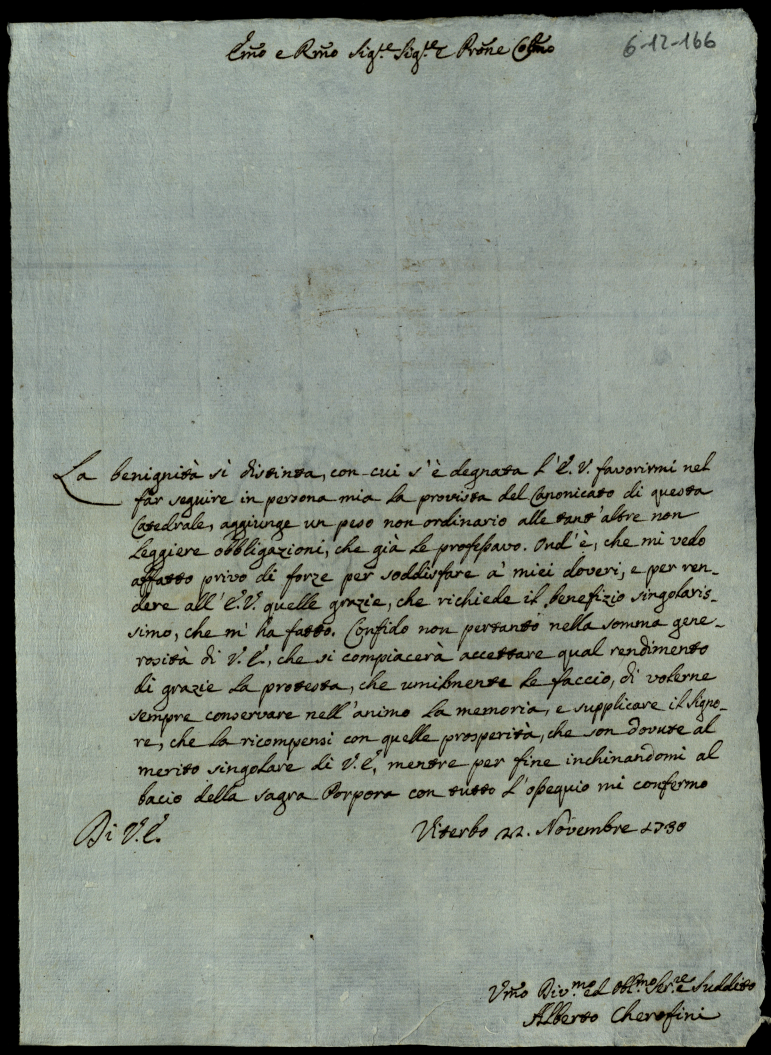 Emo e Rmo Sigre Sigre e Prone Colmo
6-12-166
La benignità sì distinta, con cui s'è degnata l'E.V. favorirmi nel
far seguire in persona mia la provista del Canonicato di questa
Catedrale, aggiunge un peso non ordinario alle tant'altre non
leggiere obbligazioni, che già le professavo. Ond'è, che mi vedo
affatto privo di forze per soddisfare a' miei doveri, e per ren-
dere all'E.V. quelle grazie, che richiede il benefizio singolaris-
simo, che m'ha fatto. Confido non pertanto nella somma gene-
rosità di V.E., che si compiacerà accettare qual rendimento
di grazie la protesta, che umilmente le faccio, di volerne
sempre conservare nell'animo la memoria, e supplicare il Signo-
re, che la ricompensi con quelle prosperità, che son dovute al
merito singolare di V.E., mentre per fine inchinandomi al
bacio della sagra Porpora con tutto l'ossequio mi confermo
Di V.E.
Viterbo 22. Novembre 1730
Umo Divmo ed Obbmo Serre e Suddito
Alberto Cherofini